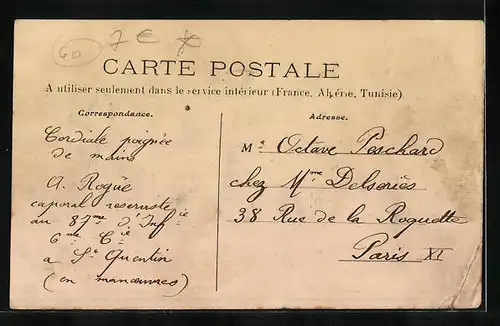 60 7 €
CARTE POSTALE
A utiliser seulement dans le service intérieur (France, Algérie, Tunisie).
Correspondance.
Adresse.
Cordiale poignée
de mains
A. Rogüé
caporal reserviste
au 87me d'Infie
6me Cie
a St Quentin
(en manœuvres)
Mr Octave Peschard
chez Mme Delseriès
38 Rue de la Roquette
Paris XI